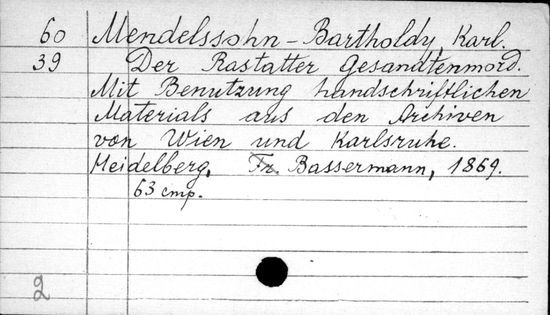 60 Mendelssohn-Bartholdy Karl.
39 Der Rastatter Gesandtenmord.
Mit Benutzung handschriftlichen
Materials aus den Archiven
von Wien und Karlsruhe.
Heidelberg, Fr. Bassermann, 1869.
63 стр.
2